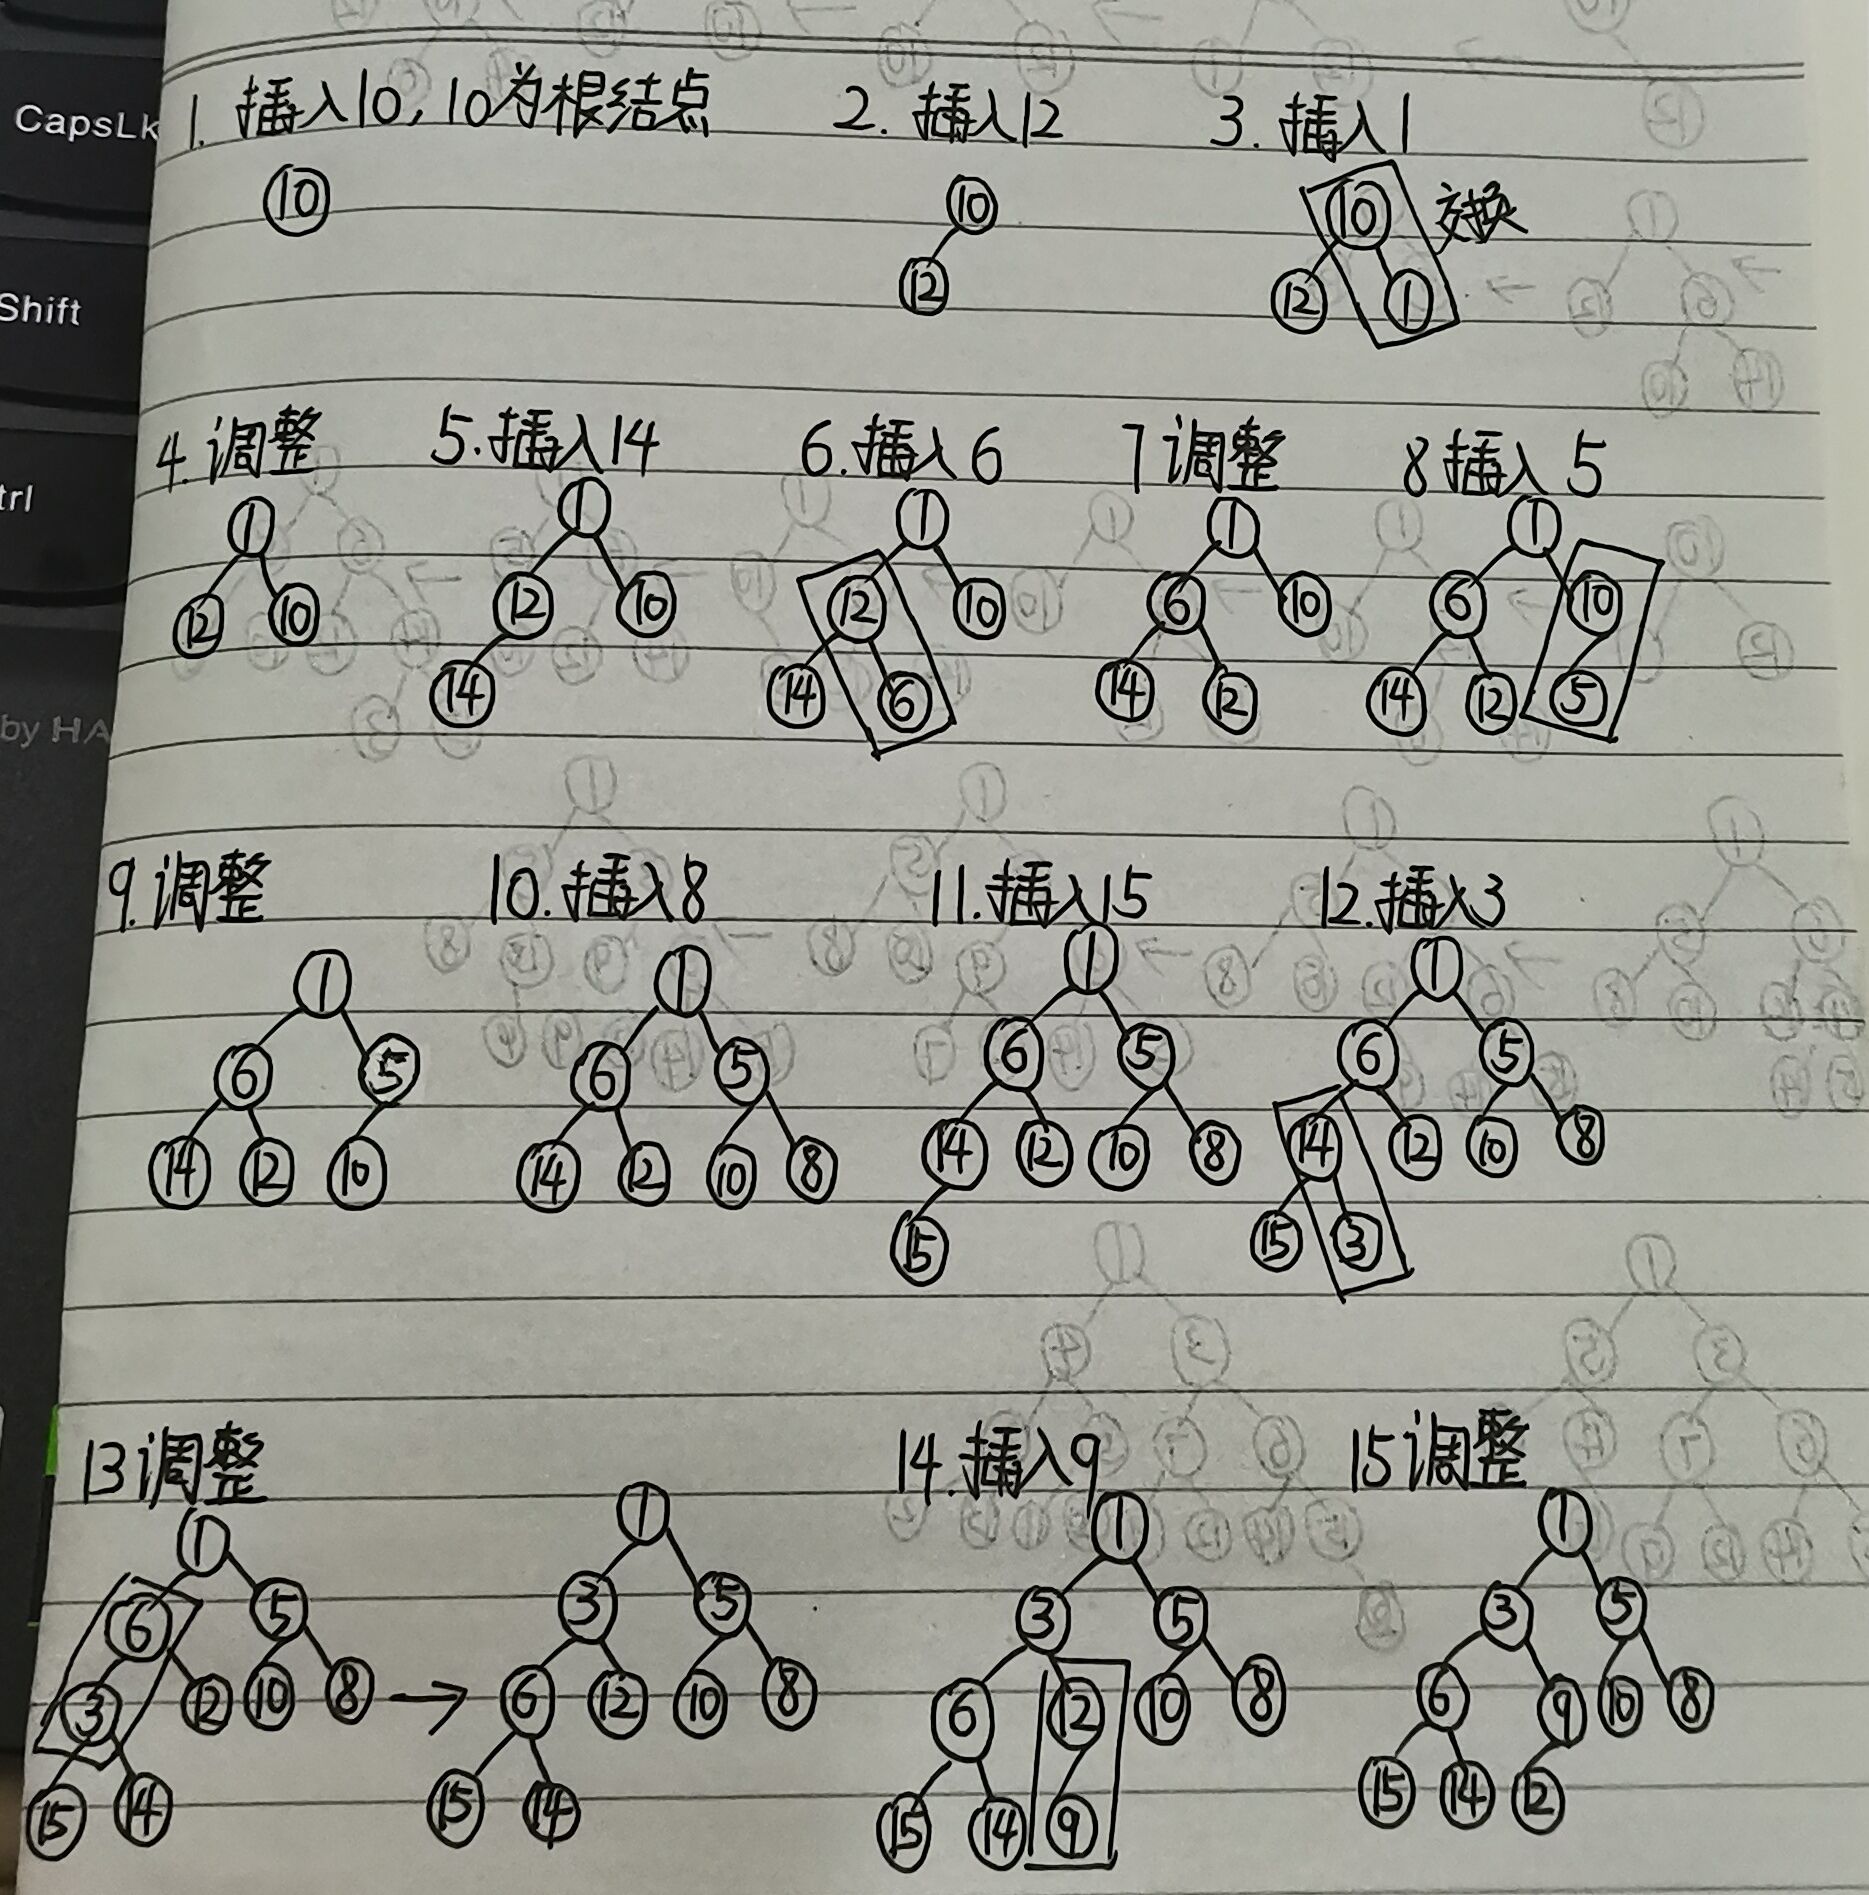 CapsLk
Shift
trl
by HA
1. 插入10,10为根结点 2. 插入12 3. 插入1
10 10 10 交换
12 12 1
4.调整 5.插入14 6.插入6 7调整 8插入5
1 1 1 1 1
12 10 12 10 12 10 6 10 6 10
14 14 6 14 12 14 12 5
9.调整 10.插入8 11.插入15 12.插入3
1 1 1 1
6 5 6 5 6 5 6 5
14 12 10 14 12 10 8 14 12 10 8 14 12 10 8
15 15 3
13调整 14.插入9 15调整
1 1 1 1
6 5 3 5 3 5 3 5
3 12 10 8 → 6 12 10 8 6 12 10 8 6 9 10 8
15 14 15 14 15 14 9 15 14 12